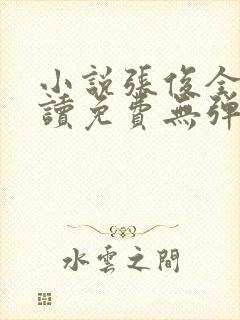 小說張俊全
讀免費無彈
水雲之間